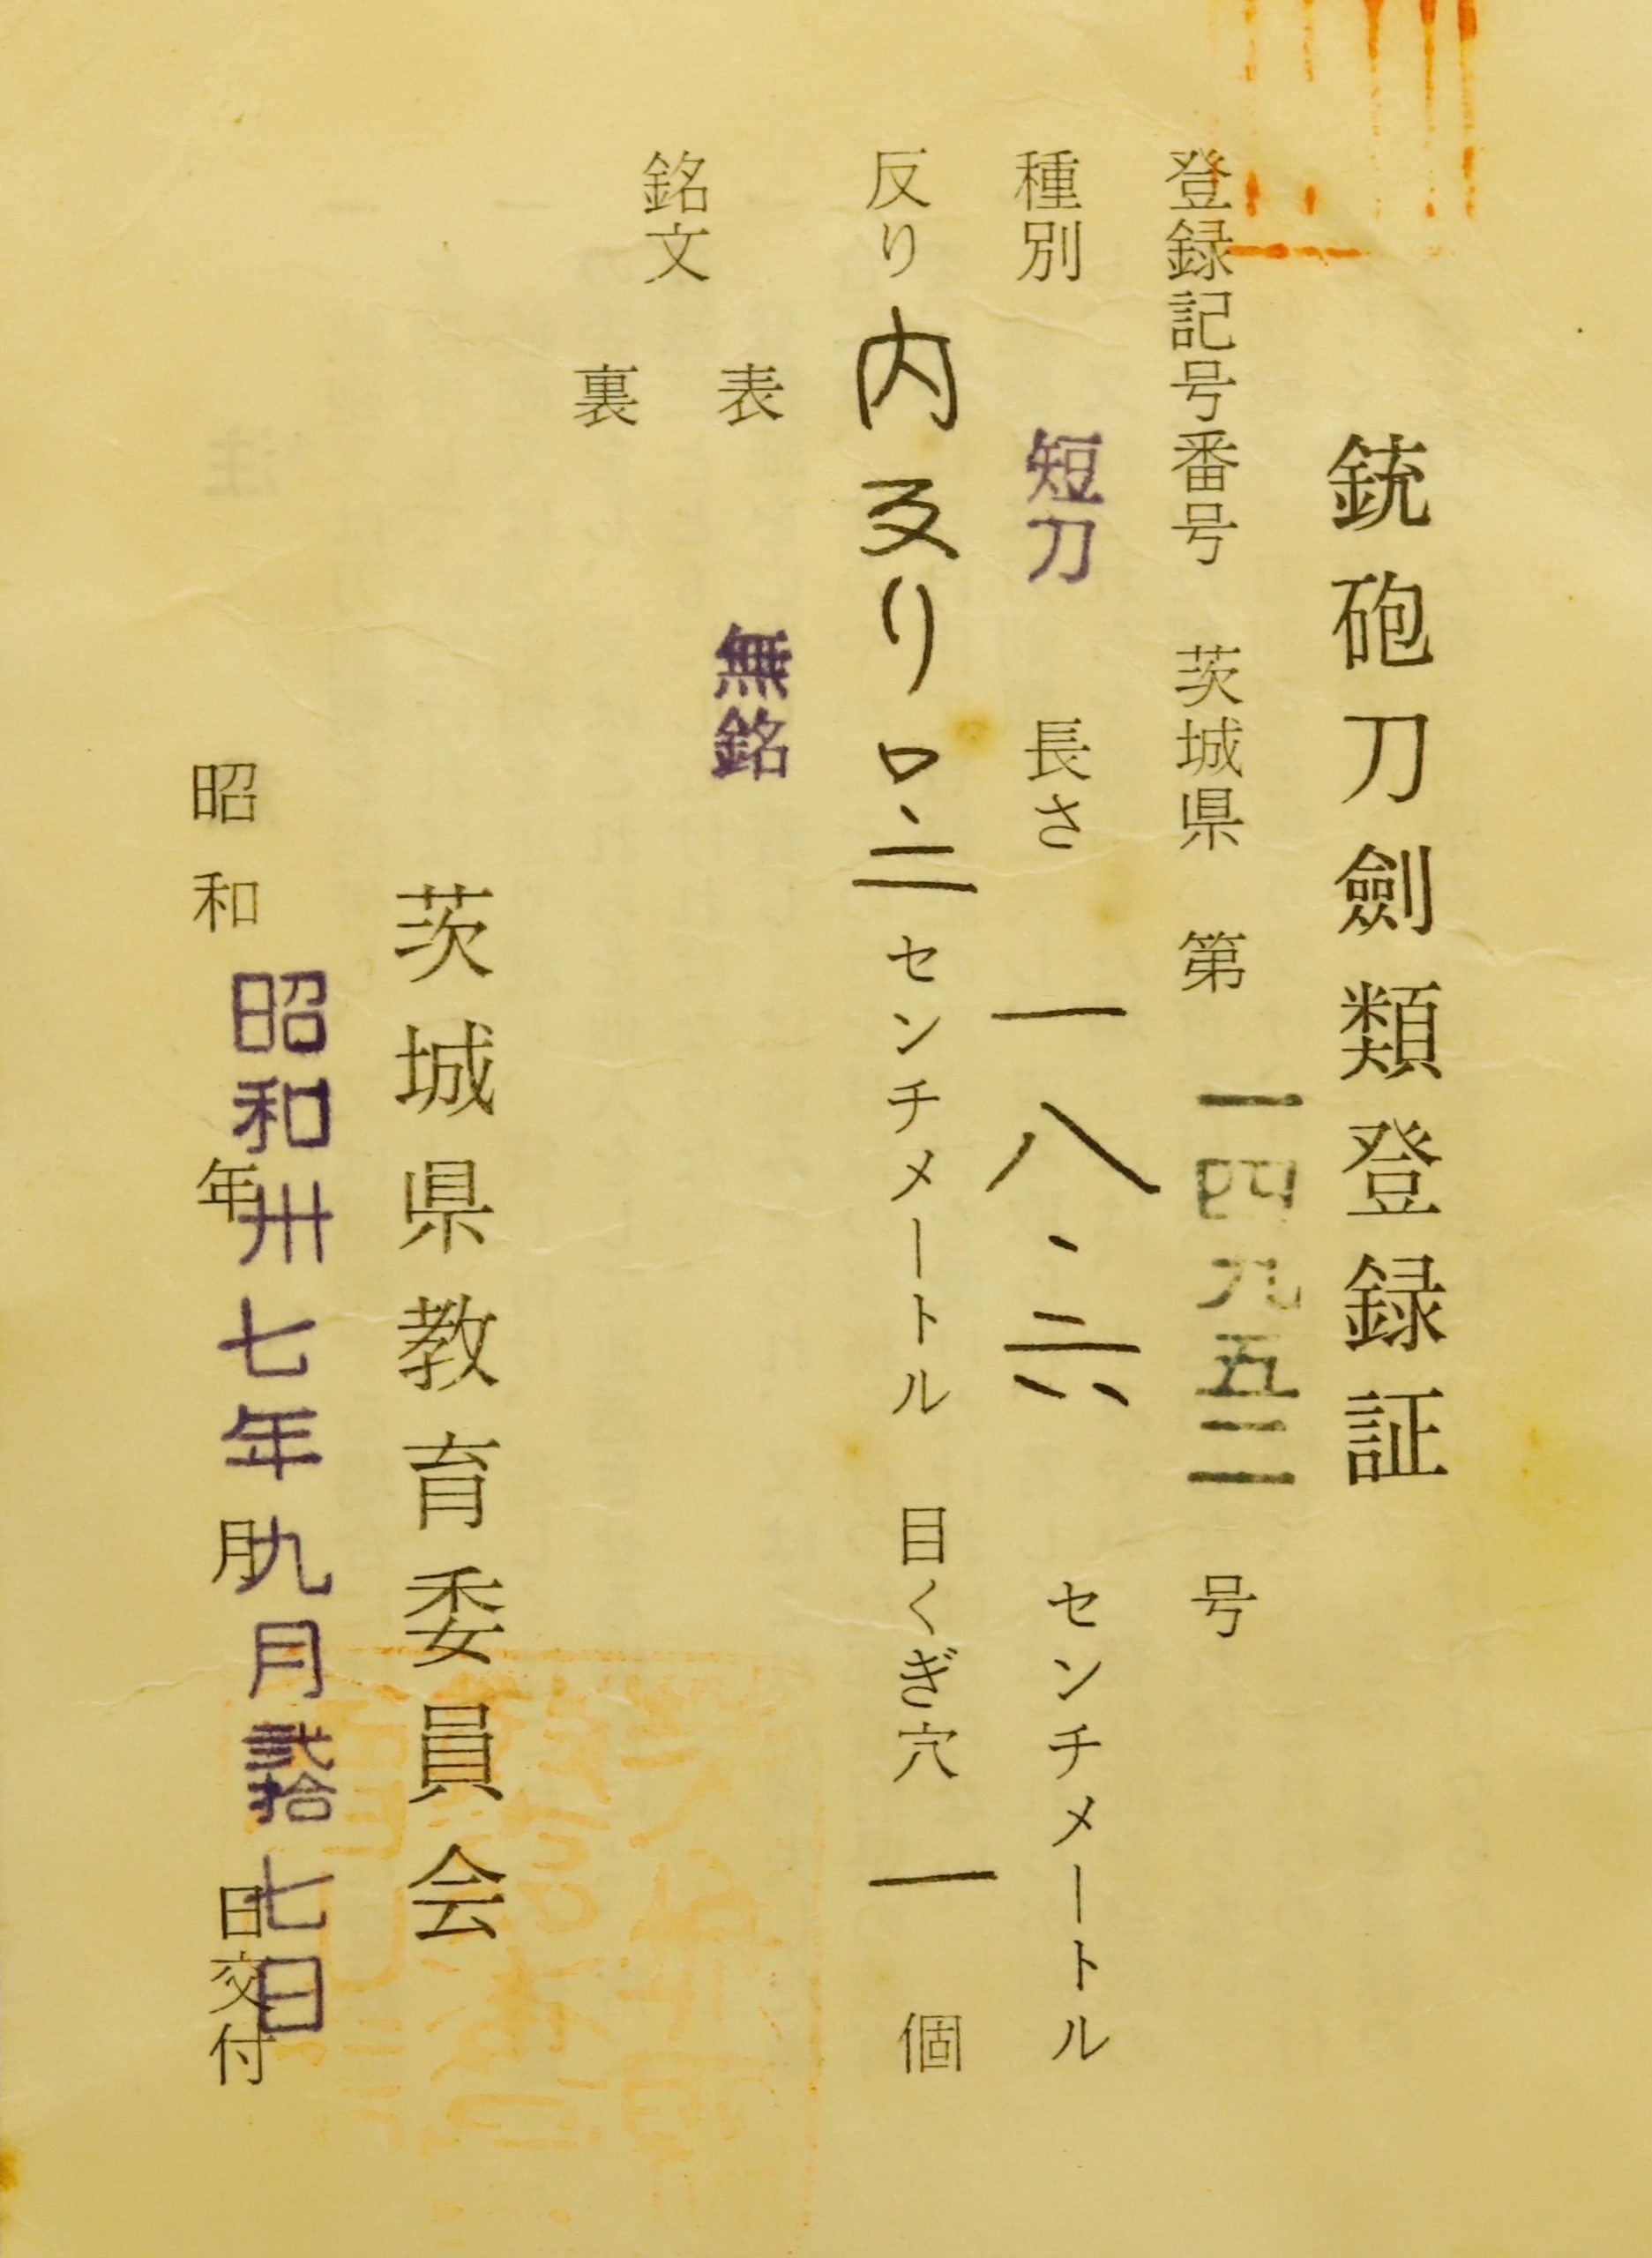 銃砲刀劍類登録証
登録記号番号 茨城県 第 一四九五二 号
種別 短刀 長さ 一八・六 センチメートル
反り 内反り 〇・二 センチメートル 目くぎ穴 一 個
銘文
表 無銘
裏
茨城県教育委員会
昭和 年 月 日交付
昭和卅七年九月弐拾七日